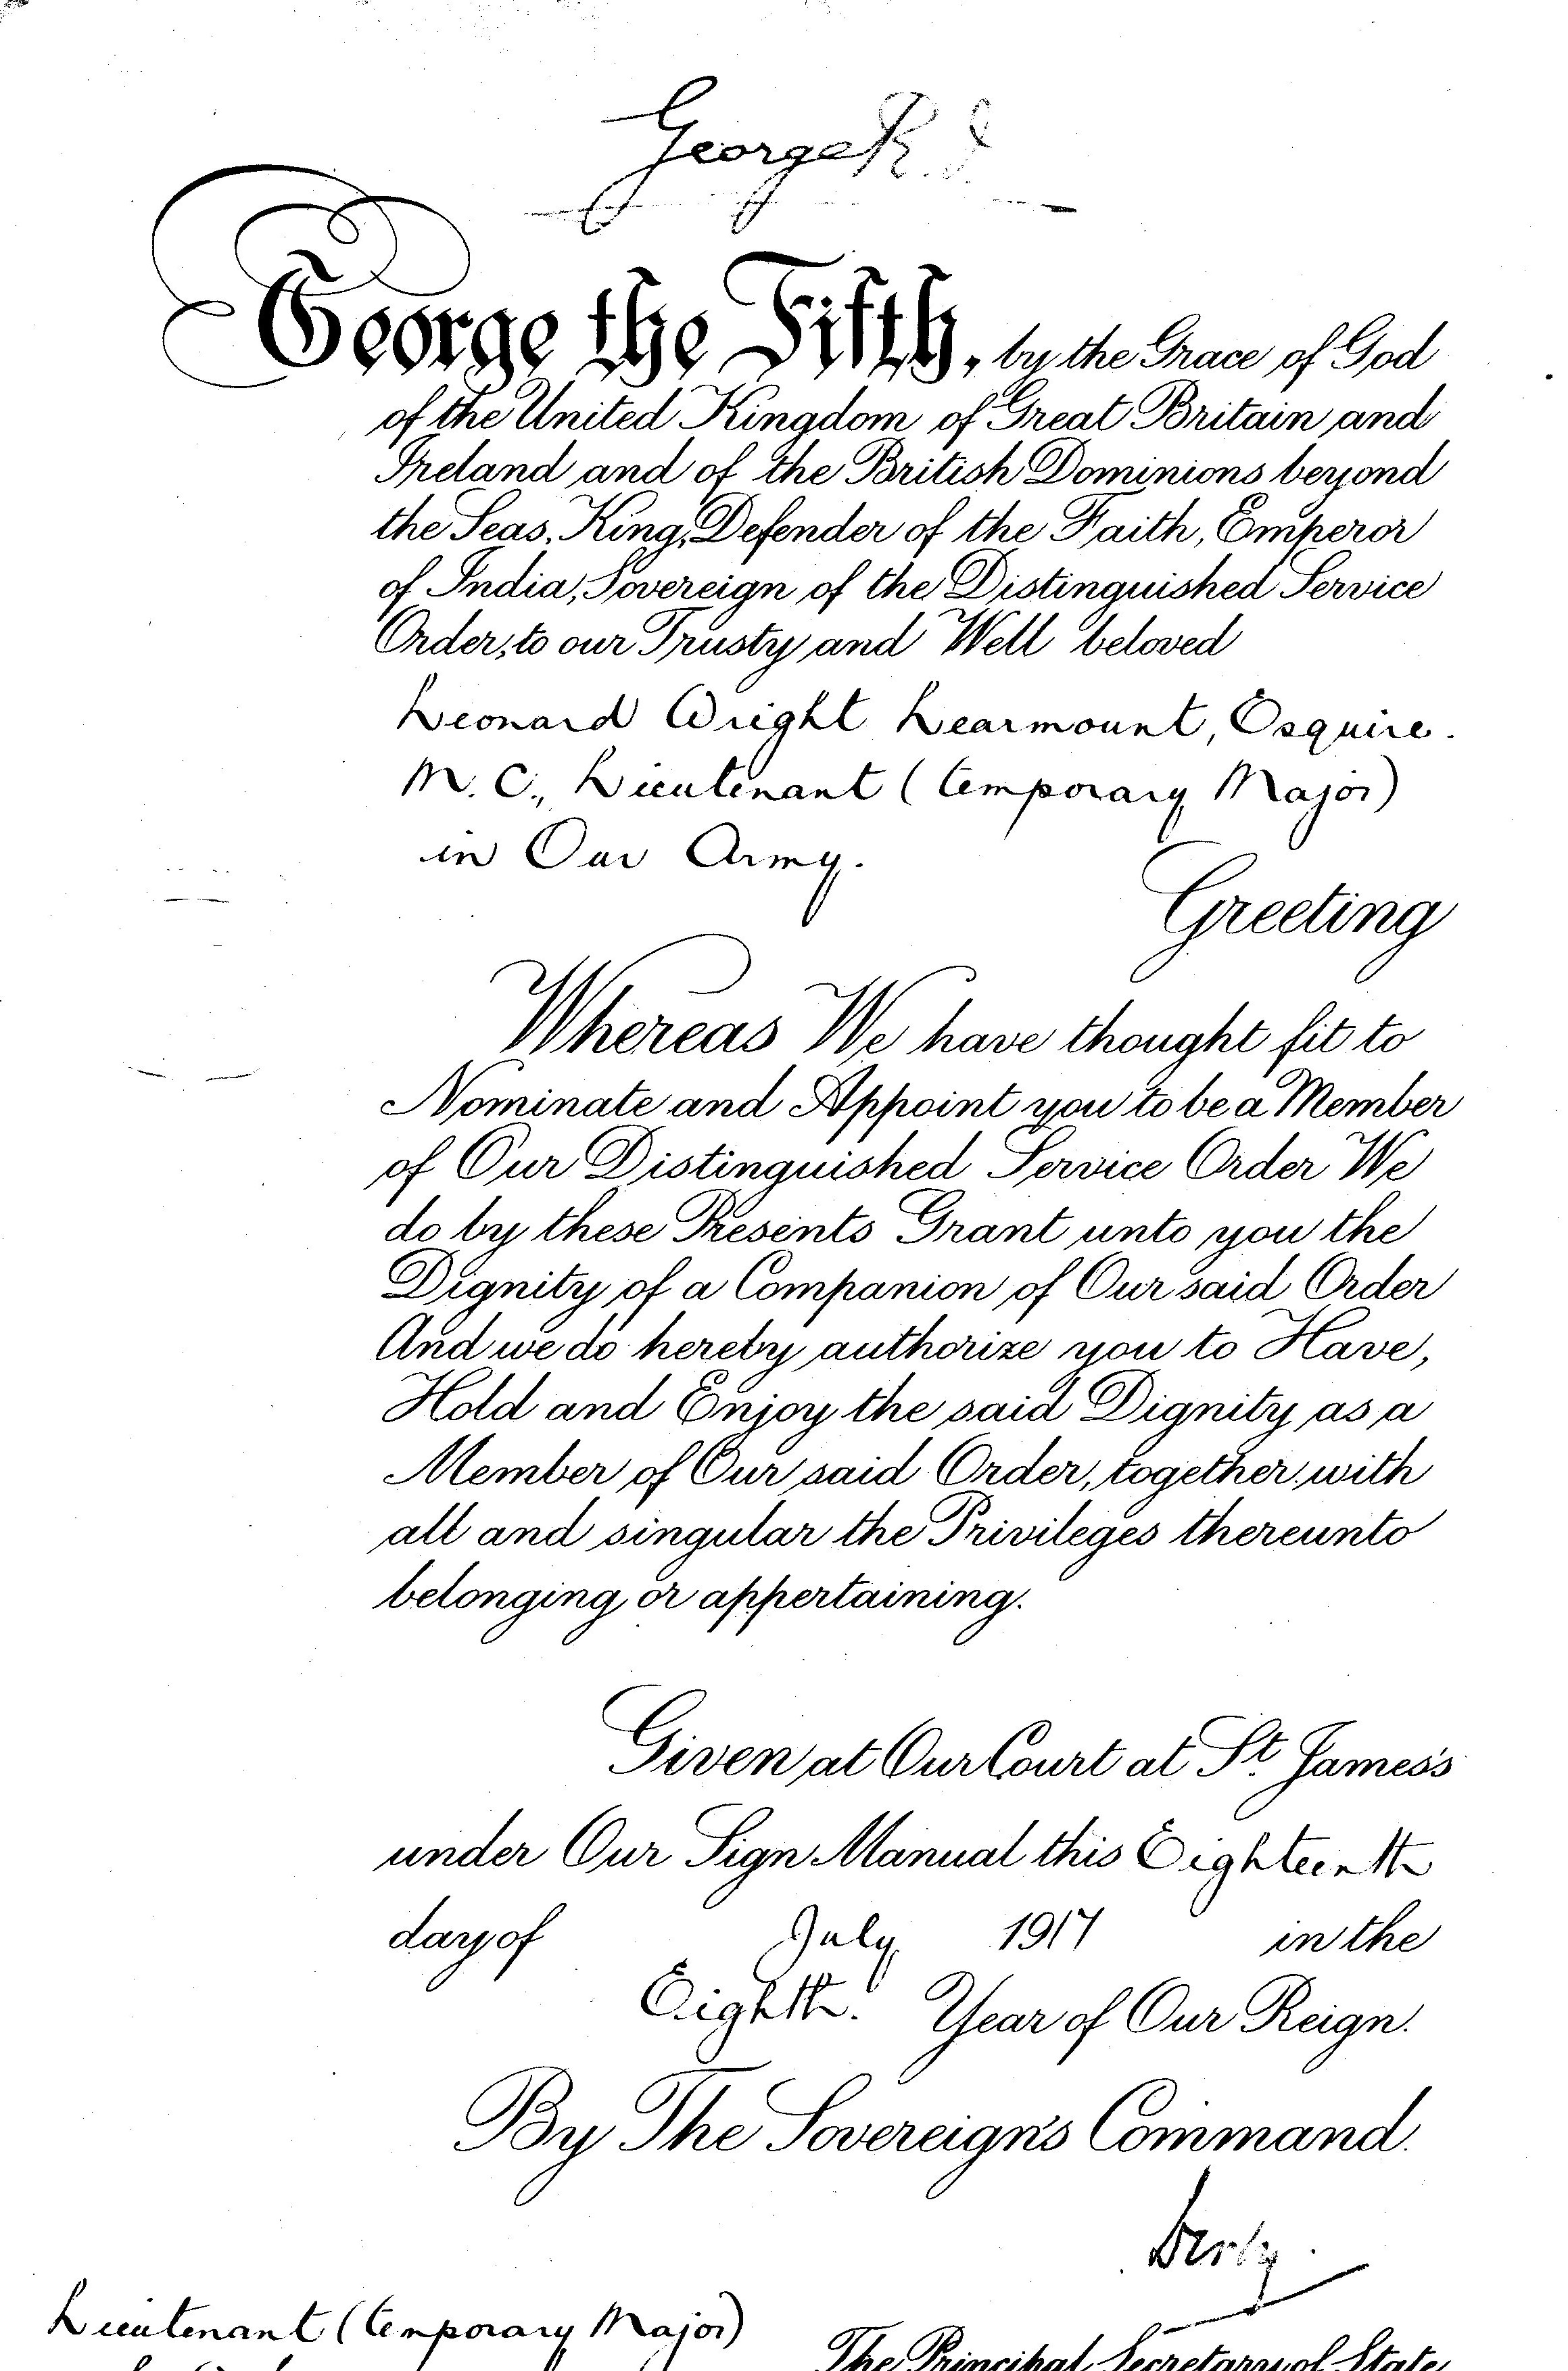 George R. I.
George the Fifth, by the Grace of God
of the United Kingdom of Great Britain and
Ireland and of the British Dominions beyond
the Seas, King, Defender of the Faith, Emperor
of India, Sovereign of the Distinguished Service
Order, to our Trusty and Well beloved
Leonard Wright Learmount, Esquire.
M.C., Lieutenant (temporary Major)
in Our Army.
Greeting
Whereas We have thought fit to
Nominate and Appoint you to be a Member
of Our Distinguished Service Order We
do by these Presents Grant unto you the
Dignity of a Companion of Our said Order
And we do hereby authorize you to Have,
Hold and Enjoy the said Dignity as a
Member of Our said Order, together with
all and singular the Privileges thereunto
belonging or appertaining.
Given at Our Court at St. James's
under Our Sign Manual this Eighteenth
day of July 1917 in the
Eighth. Year of Our Reign.
By The Sovereign's Command.
Derby.
Lieutenant (temporary Major)
The Principal Secretary of State